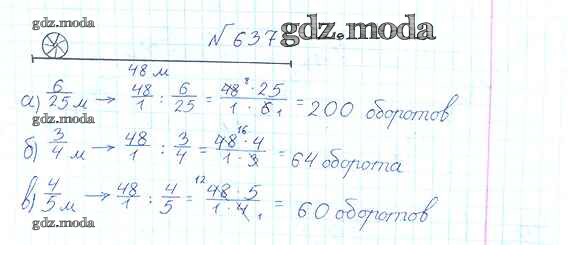 gdz.moda
№ 637 gdz.moda
48 м
а) 6/25 м → 48/1 : 6/25 = 48⁸ · 25 / 1 · 6₁ = 200 оборотов
gdz.moda
б) 3/4 м → 48/1 : 3/4 = 48¹⁶ · 4 / 1 · 3 = 64 оборота
в) 4/5 м → 48/1 : 4/5 = ¹²48 · 5 / 1 · 4₁ = 60 оборотов
gdz.moda
gdz.moda